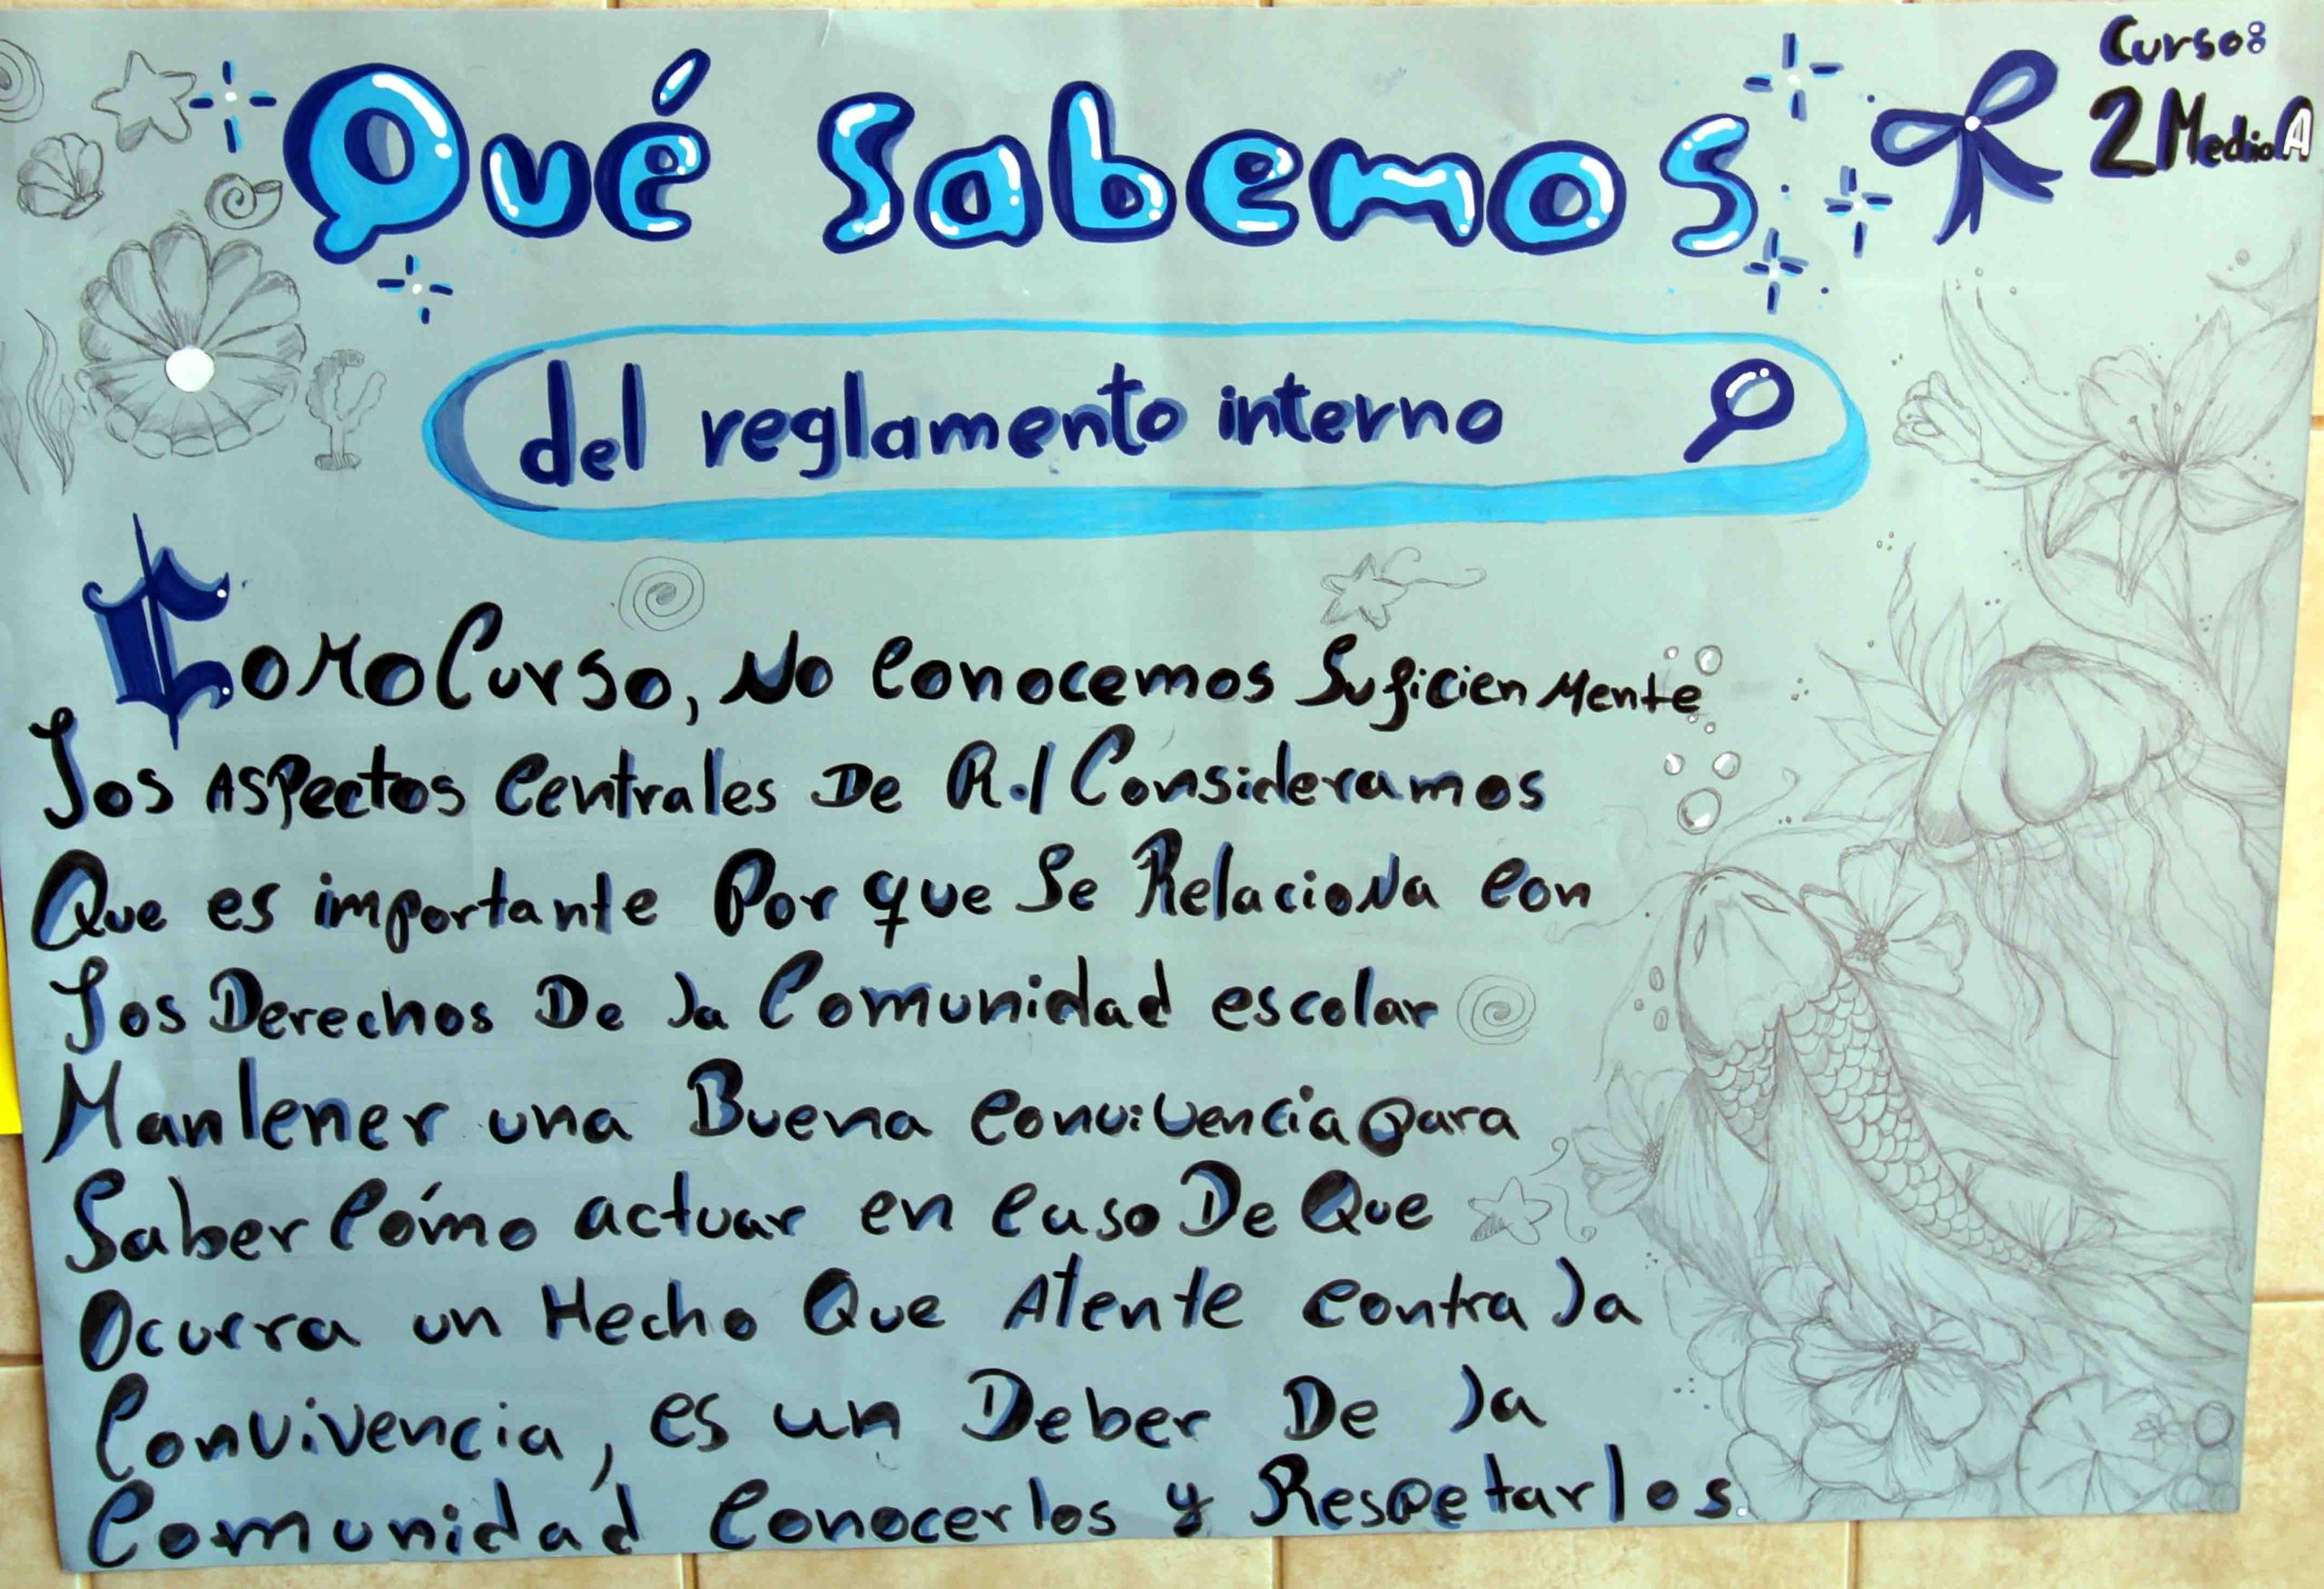 Curso:
2 Medio A
Qué Sabemos
del reglamento interno
Como Curso, No Conocemos Suficien Mente
Los Aspectos Centrales De R.I Consideramos
Que es importante Por que Se Relaciona Con
Los Derechos De la Comunidad escolar
Mantener una Buena Convivencia para
Saber Cómo actuar en Caso De Que
Ocurra un Hecho Que Atente Contra la
Convivencia, es un Deber De la
Comunidad Conocerlos y Respetarlos.